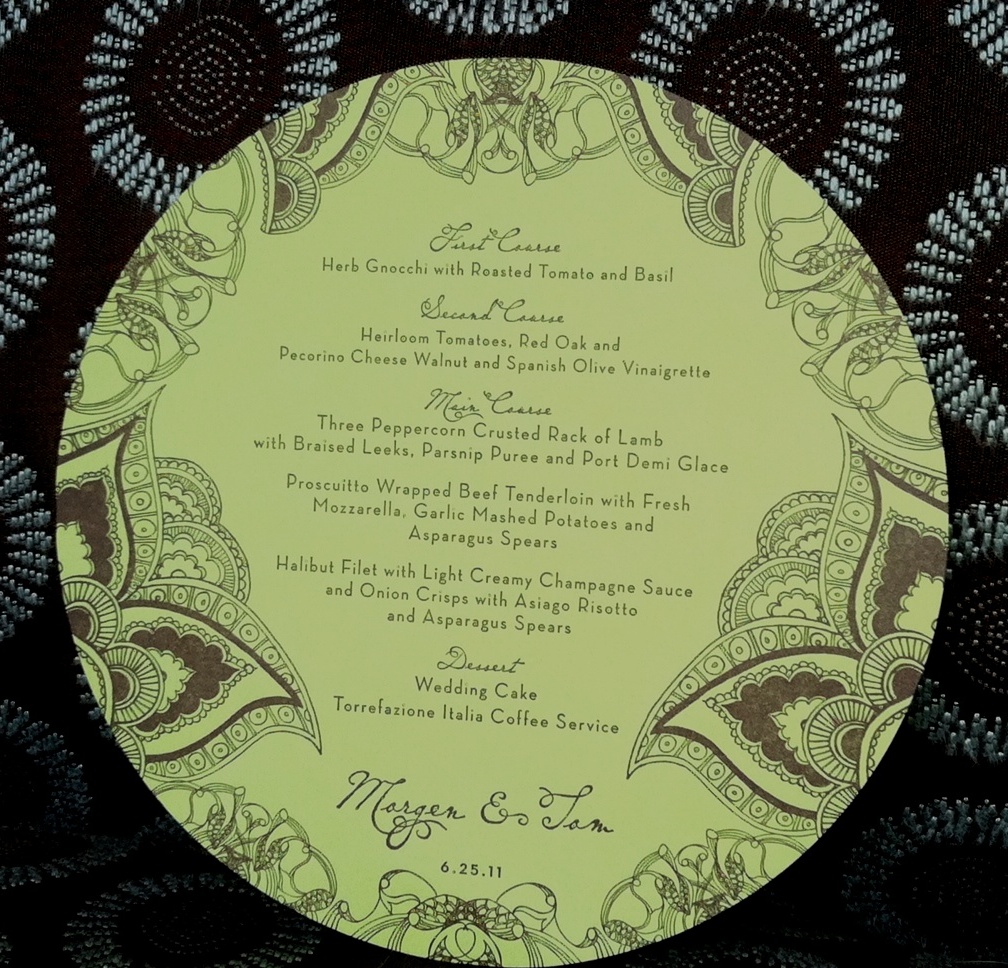 First Course
Herb Gnocchi with Roasted Tomato and Basil
Second Course
Heirloom Tomatoes, Red Oak and
Pecorino Cheese Walnut and Spanish Olive Vinaigrette
Main Course
Three Peppercorn Crusted Rack of Lamb
with Braised Leeks, Parsnip Puree and Port Demi Glace
Proscuitto Wrapped Beef Tenderloin with Fresh
Mozzarella, Garlic Mashed Potatoes and
Asparagus Spears
Halibut Filet with Light Creamy Champagne Sauce
and Onion Crisps with Asiago Risotto
and Asparagus Spears
Dessert
Wedding Cake
Torrefazione Italia Coffee Service
Morgen & Tom
6.25.11